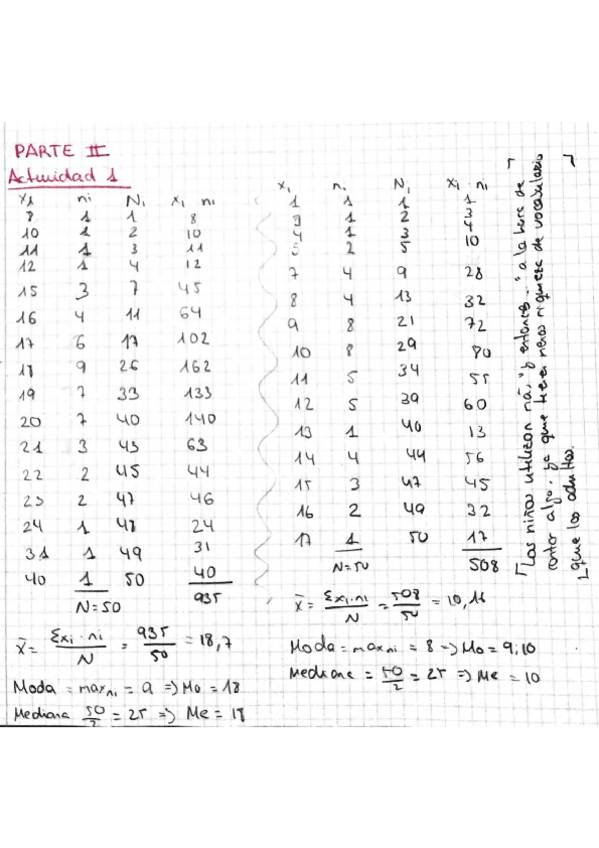 PARTE II
Actividad 1
xi ni Ni xi ni
8 1 1 8
10 1 2 10
11 1 3 11
12 1 4 12
15 3 7 45
16 4 11 64
17 6 17 102
18 9 26 162
19 7 33 133
20 7 40 140
21 3 43 63
22 2 45 44
23 2 47 46
24 1 48 24
31 1 49 31
40 1 50 40
N=50 935
x̄ = Σxi·ni / N = 935/50 = 18,7
Moda = max ni = 9 => Mo = 18
Mediana 50/2 = 25 => Me = 18
xi ni Ni xi·ni
1 1 1 1
3 1 2 3
4 1 3 4
5 2 5 10
7 4 9 28
8 4 13 32
9 8 21 72
10 8 29 80
11 5 34 55
12 5 39 60
13 1 40 13
14 4 44 56
15 3 47 45
16 2 49 32
17 1 50 17
N=50 508
x̄ = Σxi·ni / N = 508/50 = 10,16
Moda = max ni = 8 => Mo = 9,10
Mediana = 50/2 = 25 => Me = 10
Los niños utilizan más "y entonces..." a la hora de
contar algo. ya que tienen menos riqueza de vocabulario
que los adultos.